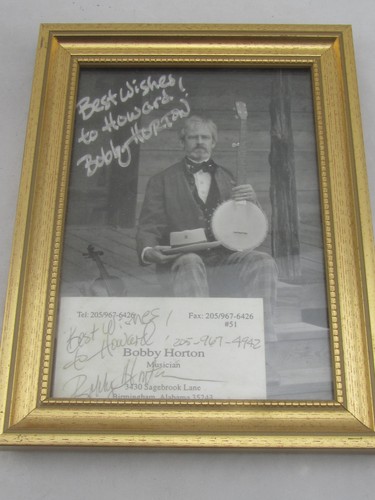 Best Wishes
to Howard!
Bobby Horton
Tel: 205/967-6426 Fax: 205/967-6426
#51
Best Wishes!
to Howard 205-967-4942
Bobby Horton
Musician
Bobby Horton
3430 Sagebrook Lane
Birmingham, Alabama 35243